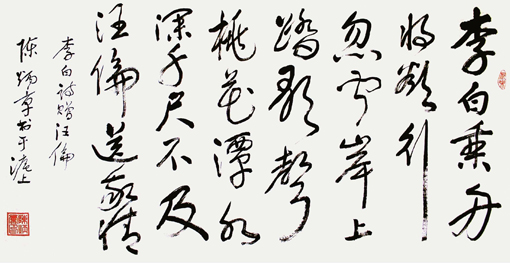 李白乘舟
将欲行
忽闻岸上
踏歌聲
桃花潭水
深千尺不及
汪倫送我情
李白诗赠汪倫
陈章书于沪上